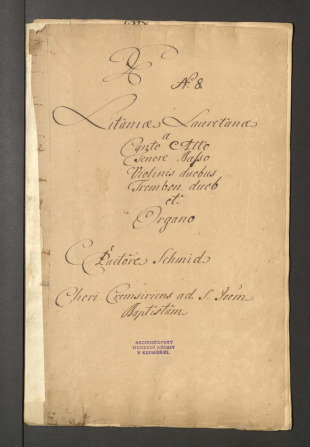 N: 8.
Litaniæ Lauretanæ
a
Canto Alto
Tenore Basso
Violinis duobus
Trombon. duob
et
Organo
Auctore Schmid
Chori Cremsiriens ad. S. Joem
Baptistam
ARCIBISKUPSKÝ
HUDEBNÍ ARCHIV
V KROMĚŘÍŽI.